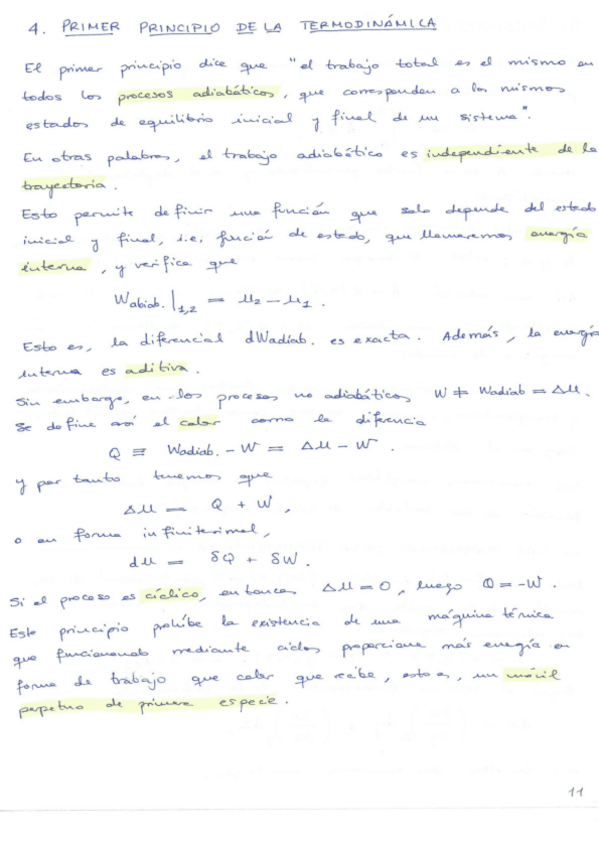 4. PRIMER PRINCIPIO DE LA TERMODINÁMICA
El primer principio dice que "el trabajo total es el mismo en
todos los procesos adiabáticos, que corresponden a los mismos
estados de equilibrio inicial y final de un sistema".
En otras palabras, el trabajo adiabático es independiente de la
trayectoria.
Esto permite definir una función que solo depende del estado
inicial y final, i.e. función de estado, que llamaremos energía
interna, y verifica que
Wabiab.|1,2 = U2 - U1.
Esto es, la diferencial dWadiab. es exacta. Además, la energía
interna es aditiva.
Sin embargo, en los procesos no adiabáticos W ≠ Wadiab = ΔU.
Se define así el calor como la diferencia
Q ≡ Wadiab. - W = ΔU - W.
y por tanto tenemos que
ΔU = Q + W,
o en forma infinitesimal,
dU = δQ + δW.
Si el proceso es cíclico, entonces ΔU = 0, luego Q = -W.
Este principio prohíbe la existencia de una máquina térmica
que funcionando mediante ciclos proporcione más energía en
forma de trabajo que calor que recibe, esto es, un móvil
perpetuo de primera especie.
11